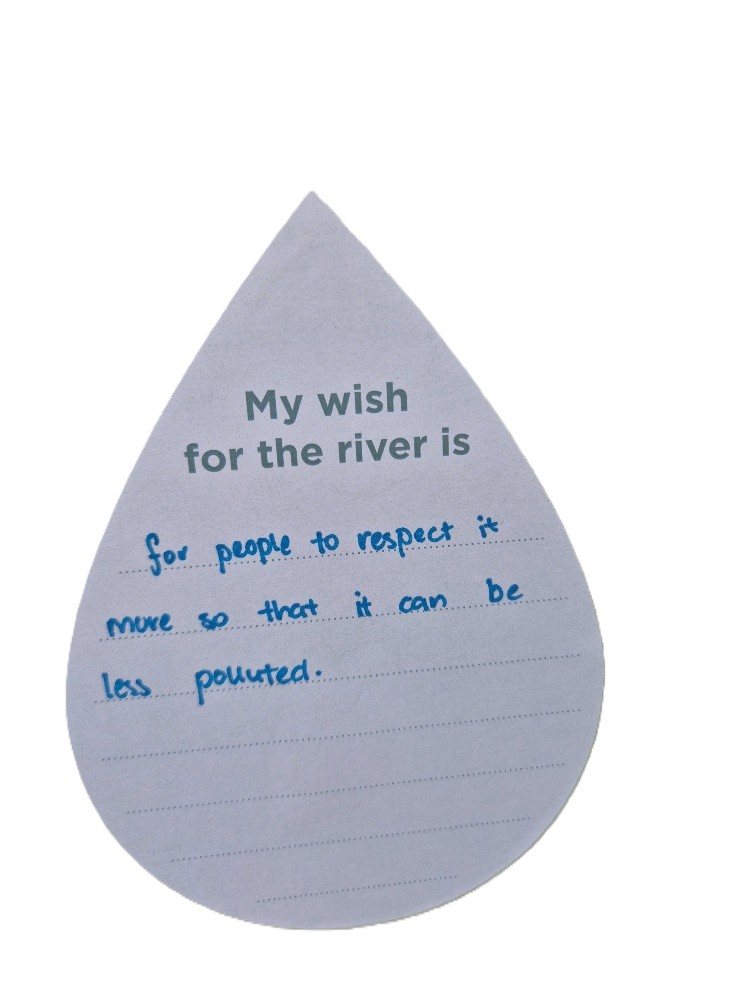 My wish
for the river is
for people to respect it
more so that it can be
less polluted.